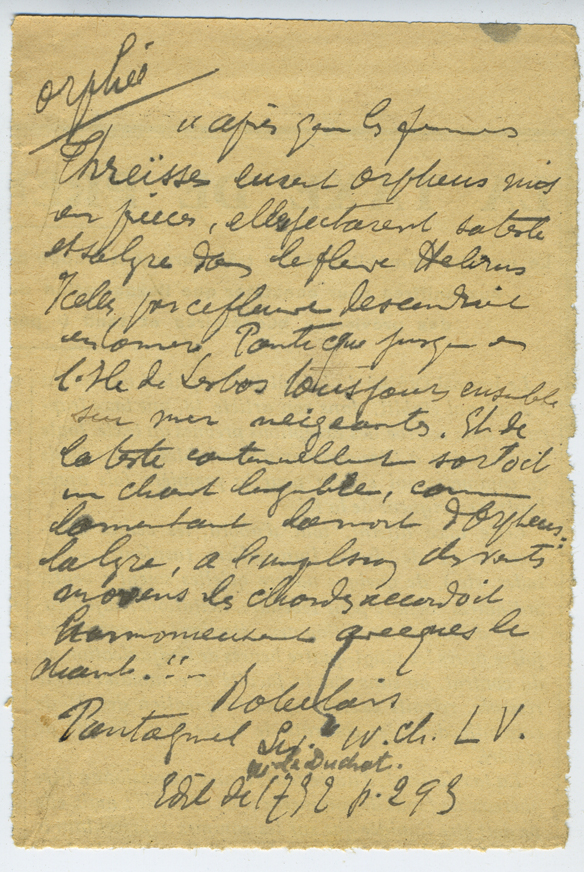 orphée
"après que les femmes
Threïsses eurent Orpheus mis
en pièces, elles jectarent sa teste
et sa lyre dans le fleuve Hebrus
Icelles par ce fleuve descendirent
en la mer Pontique jusque en
l'Isle de Lesbos tousjours ensemble
sur mer neigeantes. Et de
la teste continuellement sortoit
un chant lugubre, comme
lamentant la mort d'Orpheus:
la lyre, a l'impulsion des vents
movens les chordes accordoit
harmonieusement avecques le
chant."
Rabelais
Pantagruel Liv. IV. ch. LV.
Le Duchat.
Edit de 1732 p. 293